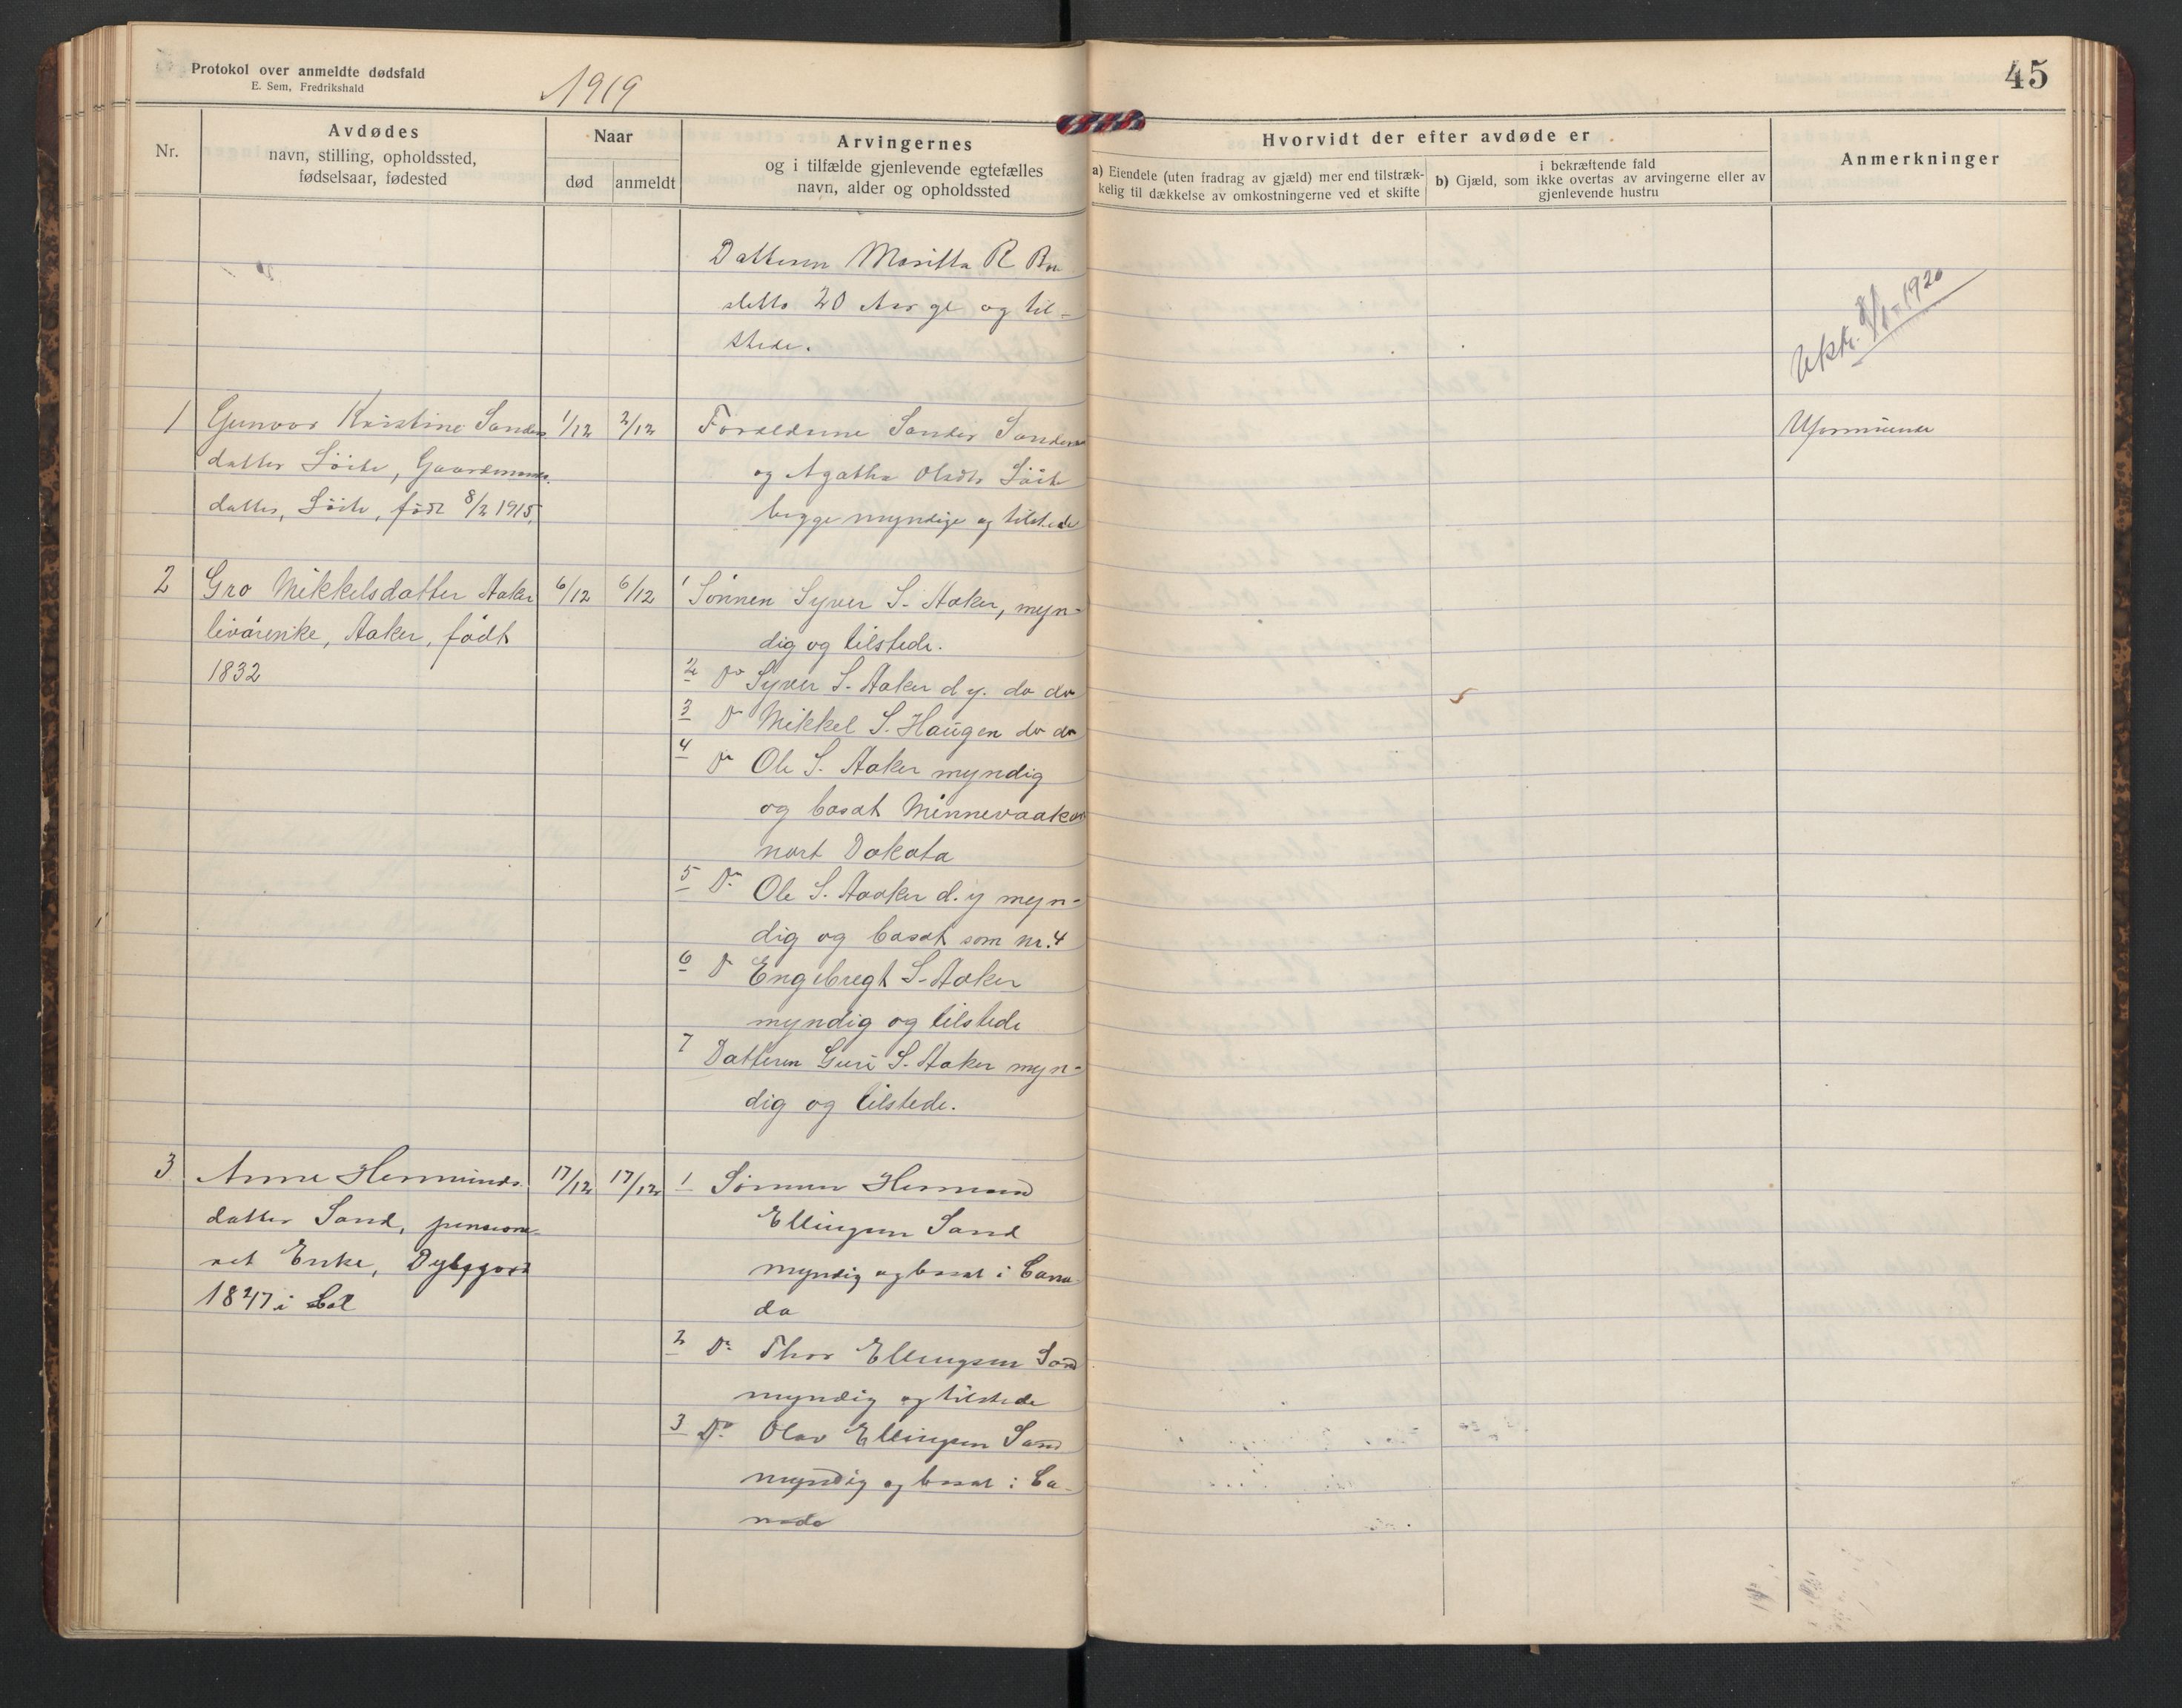 Protokol over anmeldte dødsfald
E. Sem, Fredrikshald
1919
45
Nr.
Avdødes
navn, stilling, opholdssted,
fødselsaar, fødested
Naar
død
anmeldt
Arvingernes
og i tilfælde gjenlevende egtefælles
navn, alder og opholdssted
Hvorvidt der efter avdøde er
a) Eiendele (uten fradrag av gjæld) mer end tilstræk-
kelig til dækkelse av omkostningerne ved et skifte
i bekræftende fald
b) Gjæld, som ikke overtas av arvingerne eller av
gjenlevende hustru
Anmerkninger
Datteren R
sletto 20 Aar gl og til-
stede.
8/1-1920
1 Gunvor Kristine Sanders
datter Löite, Gaardmands
datter, Löite, född 8/2 1915,
1/12 2/12
Forældrene Sander Sandersen
og Agatha Olsdtr Löite
begge myndige og tilstede
Uformuende
2 Gro Mikkelsdatter Aaker
livörenke, Aaker, født
1832
6/12 6/12
1 Sönnen Syver S. Aaker, myn-
dig og tilstede.
2 Do Syver S. Aaker d y. do do
3 Do Mikkel S. Haugen do do
4 Do Ole S. Aaker myndig
og bosat Minnevaakan
nort Dakota
5 Do Ole S. Aaker d. y myn-
dig og bosat som nr. 4
6 Do Engebregt S. Aaker
myndig og tilstede
7 Datteren Guri S. Aaker myn-
dig og tilstede.
3 Anne Hermunds
datter Sand, pensione-
ret Enke,
1847 i
17/12 17/12
1 Sönnen Hermund
Ellingsen Sand
myndig og bosat i Cana-
da
2 Do Thor Ellingsen Sand
myndig og tilstede
3 Do Olav Ellingsen Sand
myndig og bosat i Ca-
nada